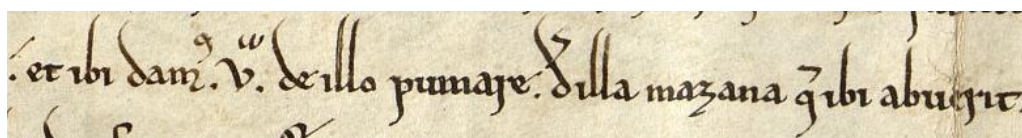 et ibi dam⁹. v. de illo pumare. d̄ illa mazana q̄ ibi abuerit.